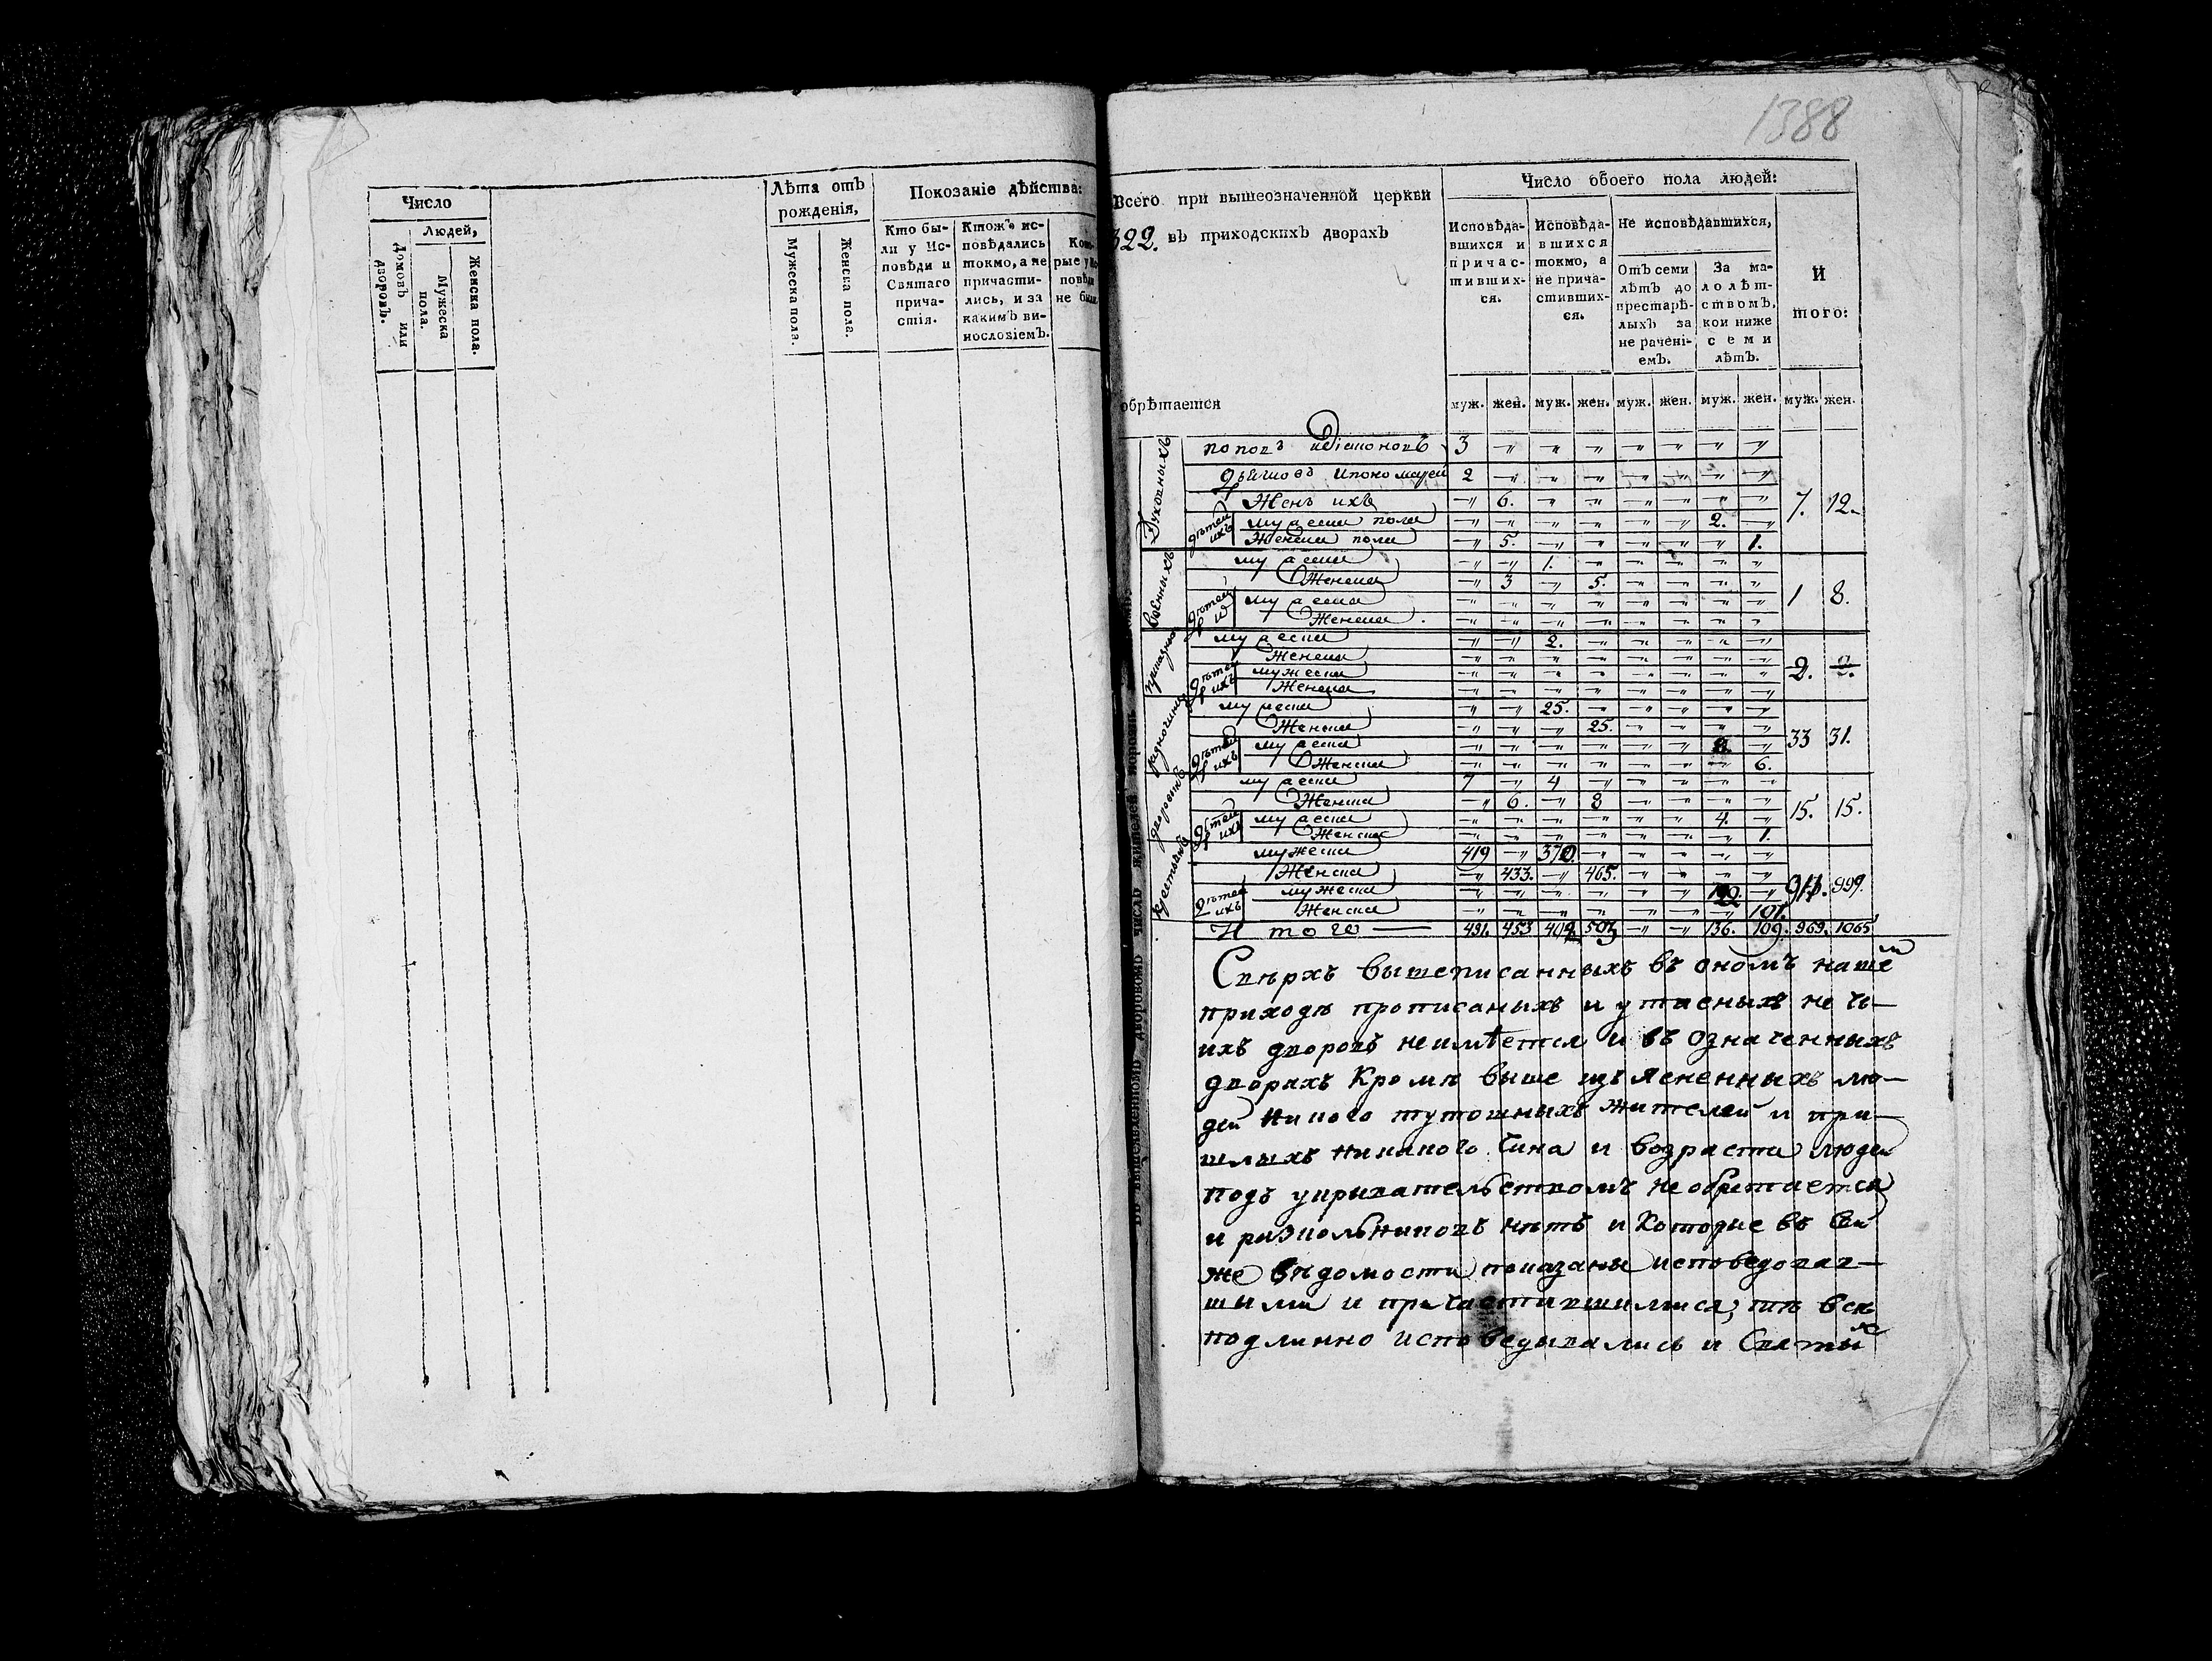 Число
Людей,
Домовъ или дворовъ.
Мужеска пола.
Женска пола.
Лѣта отъ
рожденія,
Мужеска пола.
Женска пола.
Покозаніе дѣйства:
Кто бы-
ли у Ис-
повѣди и
Святаго
прича-
стія.
Ктожъ ис-
повѣдались
токмо, а не
причасти-
лись, и за
какимъ ви-
нословіемъ.
1388
Всего при вышеозначенной церкви
322. въ приходскихъ дворахъ
обрѣтается
Число обоего пола людей:
Исповѣда-
вшихся и
причас-
тивших-
ся.
Исповѣда-
вшихся
токмо, а
не прича-
стивших-
ся.
Не исповѣдавшихся,
Отъ семи
лѣтъ до
престарѣ-
лыхъ за
не раченi-
емъ.
За ма-
лолѣт-
ствомъ,
кои ниже
семи
лѣтъ.
И
того:
муж. жен. муж. жен. муж. жен. муж. жен. муж. жен.
Духовныхъ
поповъ идіаконовъ 3 〃 〃 〃 〃 〃 〃 〃
дьячковъ ипономарей 2 〃 〃 〃 〃 〃 〃 〃
Женъ ихъ 〃 6. 〃 〃 〃 〃 〃 〃 7. 12.
дѣтей ихъ
мужеска пола 〃 〃 〃 〃 〃 〃 2. 〃
Женска пола 〃 5. 〃 〃 〃 〃 〃 1.
военныхъ
мужеска 〃 〃 1. 〃 〃 〃 〃 〃
Женска 〃 3 〃 5. 〃 〃 〃 〃 1 8.
мужеска 〃 〃 〃 〃 〃 〃 〃 〃
Женска. 〃 〃 〃 〃 〃 〃 〃 〃
мужеска 〃 〃 2. 〃 〃 〃 〃 〃
Женска 〃 〃 〃 〃 〃 〃 〃 〃 2.
дѣтей ихъ
мужеска 〃 〃 〃 〃 〃 〃 〃 〃
Женска 〃 〃 〃 〃 〃 〃 〃 〃
мужеска 〃 〃 25. 〃 〃 〃 〃 〃
Женска 〃 〃 〃 25. 〃 〃 〃 〃 33 31.
дѣтей ихъ
мужеска 〃 〃 〃 〃 〃 〃 8. 〃
Женска 〃 〃 〃 〃 〃 〃 〃 6.
мужеска 7 〃 4 〃 〃 〃 〃 〃
Женска 〃 6. 〃 8 〃 〃 〃 〃 15. 15.
дѣтей ихъ
мужеска 〃 〃 〃 〃 〃 〃 4. 〃
Женска 〃 〃 〃 〃 〃 〃 〃 1.
крестьянъ
мужеска 419 〃 370. 〃 〃 〃 〃 〃
Женска 〃 433. 〃 465. 〃 〃 〃 〃 999.
дѣтей ихъ
мужеска 〃 〃 〃 〃 〃 〃 〃
Женска 〃 〃 〃 〃 〃 〃 〃 101.
Итого — 431. 453 402 503 〃 〃 136. 109. 969. 1065
Сверхъ вышеписанныхъ въ ономъ нашем
приходѣ прописаныхъ и утаеныхъ не чь-
ихъ дворовъ неимѣется и въ означенныхъ
дворахъ Кромѣ выше изъясненныхъ лю-
дей никого тутошныхъ жителей и при-
шлыхъ никакого чина и возраста людей
подъ укрывательствомъ необретается
и разкольниковъ нѣтъ и Которые въ сей
же вѣдомости показаны исповедовав-
шыми и причастившимися, тѣ все
подлинно исповедывались и Святых